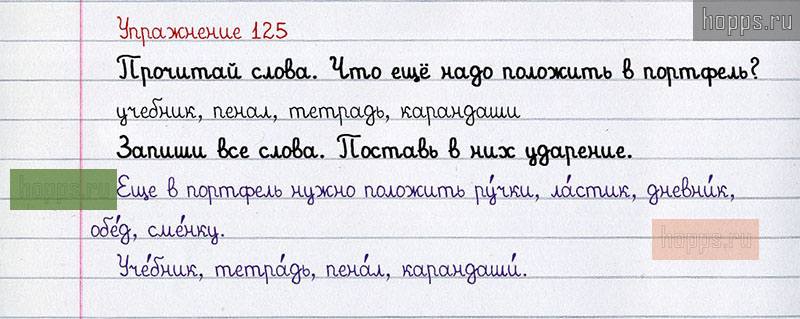 hopps.ru
Упражнение 125
Прочитай слова. Что ещё надо положить в портфель?
учебник, пенал, тетрадь, карандаши
Запиши все слова. Поставь в них ударение.
hopps.ru
Еще в портфель нужно положить ру́чки, ла́стик, дневни́к,
обе́д, сме́нку.
hopps.ru
Уче́бник, тетра́дь, пена́л, карандаши́.